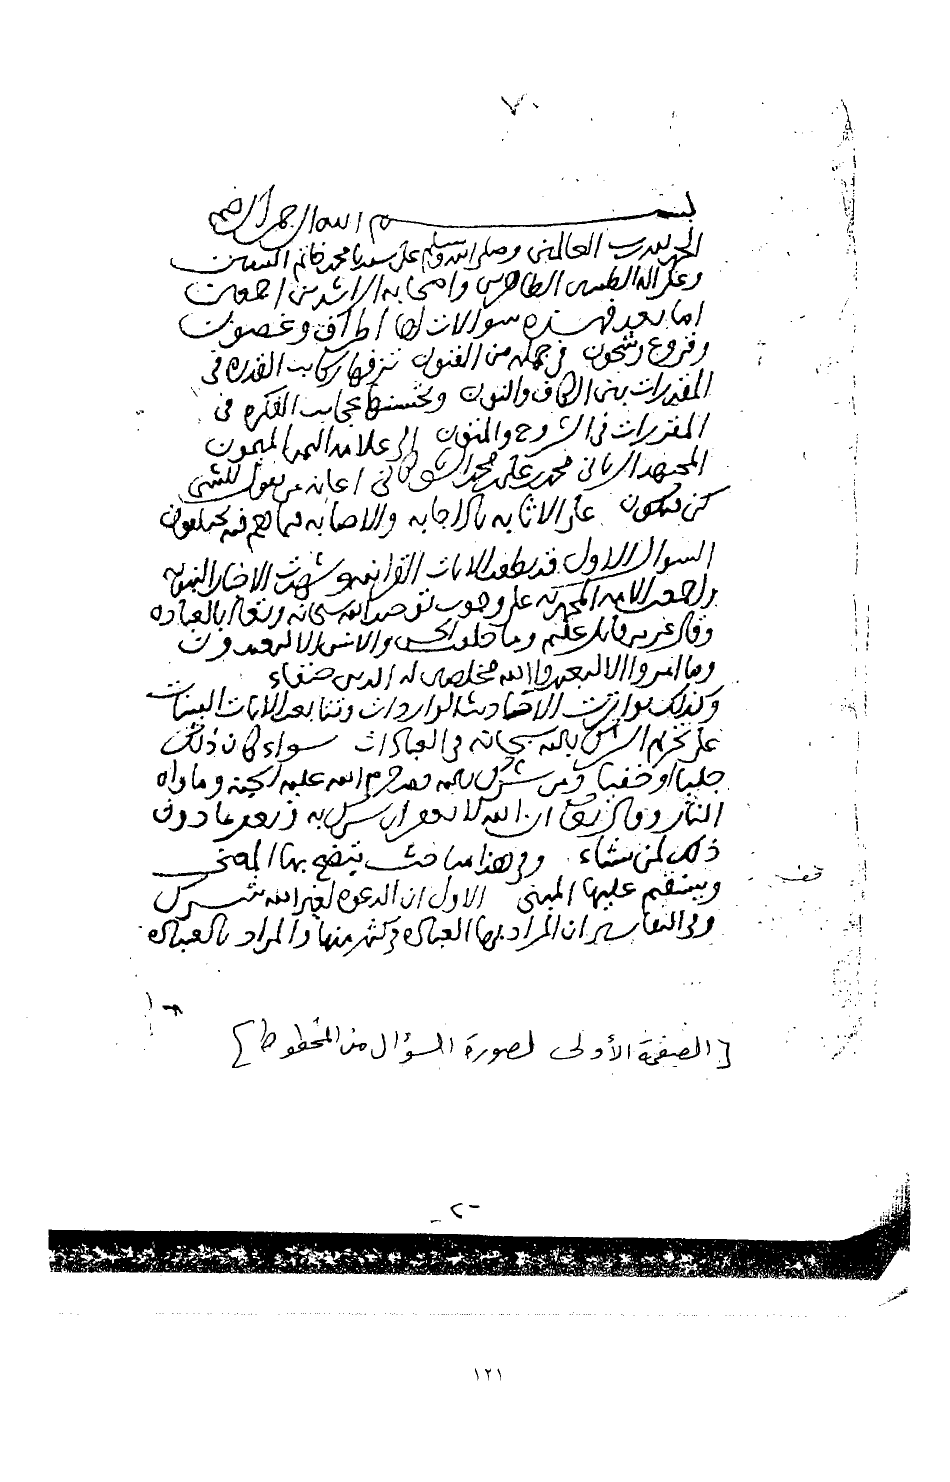 ٧٠
بسم الله الرحمن الرحيم
الحمد لله رب العالمين وصلى الله وسلم على سيدنا محمد خاتم النبيين
وعلى اله الطيبين الطاهرين واصحابه الراشدين اجمعين
اما بعد فهذه سوالات لها اطراف وغصون
وفروع وشجون في جملة من الفنون تزفها ركايب القدره في
المقدرات بين الكاف والنون وتحسنها عجايب الفكره في
المقررات في الشروح والمتون إلى علامة اليمن الميمون
المجتهد الرباني محمد بن علي بن محمد الشوكاني اعانه من يقول للشي
كن فيكون على الاثابه بالاجابه والاصابه فيما هم فيه يختلفون
السوال الاول قد نطقت الايات القرانيه وشهدت الاخبار النبويه
واجمعت الامه المحمديه على وجوب توحيد الله سبحانه وتعالى بالعباده
وقال عز من قايل عليم وما خلقت الجن والانس الا ليعبدون
وما امروا الا ليعبدوا الله مخلصين له الدين حنفاء
وكذلك تواترت الاحاديث الواردات وتتابعت الايات البينات
على تحريم الشرك بالله سبحانه في العبادات سواء كان ذلك
جليا او خفيا ومن يشرك بالله فقد حرم الله عليه الجنة وماواه
النار وقال تعالى ان الله لا يغفر ان يشرك به ويغفر ما دون
ذلك لمن يشاء وفي هذا مباحث يتضح بها المعنى
ويستقيم عليها المبنى الاول ان الدعوه لغير الله شرك
وفي التفاسير ان المراد بها العباده في كثير منها والمراد بالعباده
[الصفحة الأولى لصورة السؤال من المخطوط]
-٢-
١٢١